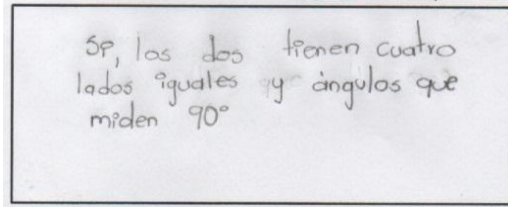 Sí, los dos tienen cuatro
lados iguales y ángulos que
miden 90°